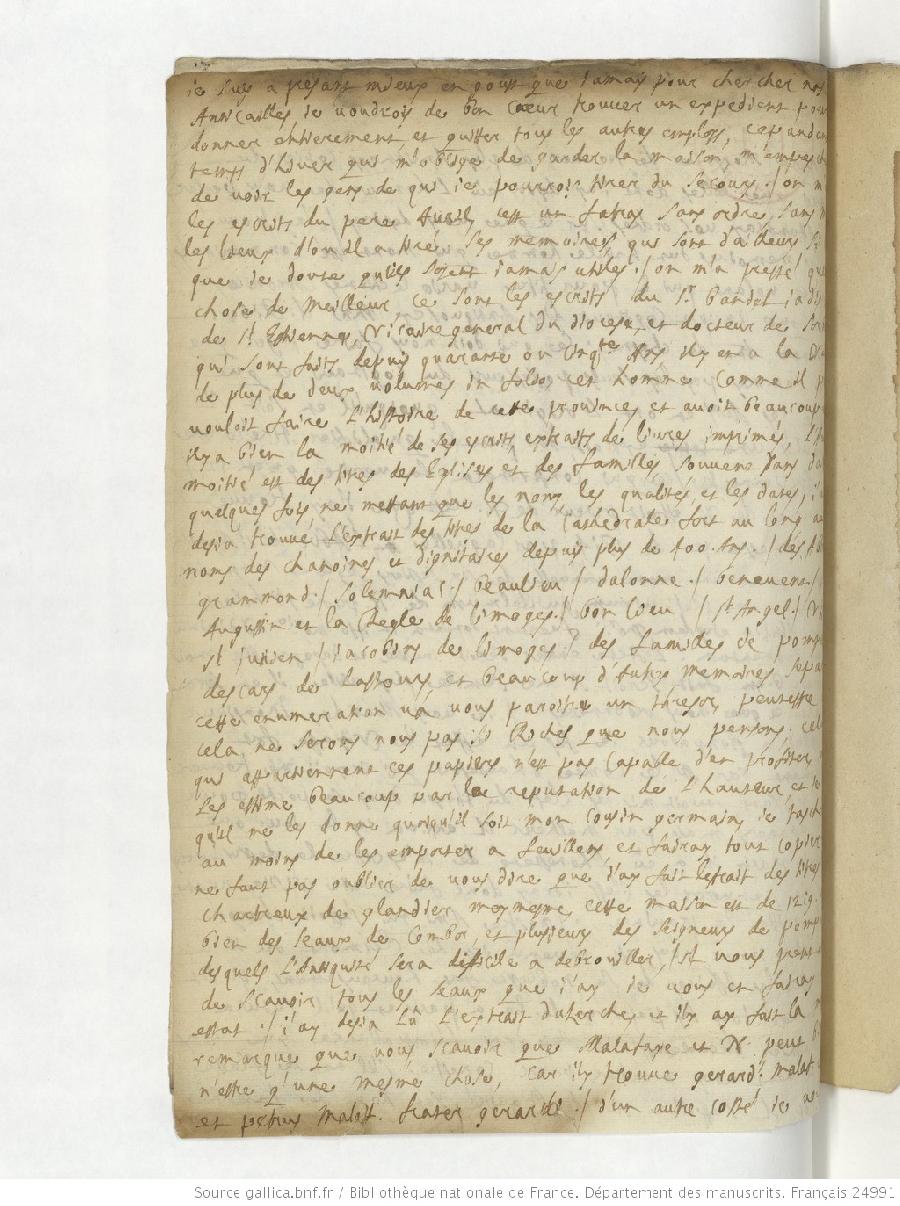 ie suis a presant mieux en goust que iamais pour chercher nos
Anticailles, ie voudrois de bon cœur trouver un expedient pour
donner entierement, et quitter tous les autres employs, cependant
temps d'hiver qui m'oblige de garder la maison, m'empes
de voir les gens de qui ie pourrois tirer du secours. / on m
les escrits du pere c'est un fatras sans ordre, sans
les lieux d'ou il a tiré ses memoires, qui sont d'ailleurs
que ie doute qu'ils soient iamais utiles. / on m'a presté qu
chose de meilleur ce sont les escrits du Sr bandel iadis
de St Estienne, Vicaire general du diocese, et docteur de Sor
qui sont faits depuis quarante ou Ans il y en a la
de plus de deux volumes in folio, cet homme comme il
vouloit faire l'histoire de cette province, et avoit beaucoup
il y a bien la moitié de ses escrits extraits de livres imprimés, l'
moitié est des titres des Eglises et des familles, souvent sans da
quelques fois ne mettant que les noms, les qualités, et les dates, i
desia trouvé l'extrait des titres de la Cathedrale fort au long au
noms des chanoines et dignitaires depuis plus de 400. Ans. / des
grammond. / Solemniac. / beaulieu / dalonne. / benevent /
Augustin et la Regle de limoges. / bon lieu / St Angel. /
St iunien / iacobins de limoges / des familles de pomp
descars de Lastours, et beaucoup d'Autres memoires sepa
cette enumeration va vous paroitre un thresor, peutestre
cela ne serons nous pas si Riches que nous pensons, cel
qui appartiennent ces papiers n'est pas capable d'en profiter
les estime beaucoup par la reputation de l'hauteur, et
qu'il ne les donne quoiqu'il soit mon cousin germain, ie tasch
au moins de les emporter a et fairay tout copier
ne faut pas oublier de vous dire que i'ay fait l'extrait des titres
Chartreux de glandier moymesme, cette maison est de 1219.
bien des seaux de Comborn, et plusieurs des seigneurs de pomp
desquels l'Antiquité sera difficile a debrouiller, / il vous
de scavoir tous les seaux que i'ay ie vous et fairay
estat. / i'ay desia lû l'extrait et i'y ay fait la
remarque que vous scavoir que Malafaye et N. peut
n'estre q'une mesme chose, car i'y trouve gerard. malef
et petrus malef. frater gerardi. / d'un autre costé ie
Source gallica.bnf.fr / Bibliothèque nationale de France. Département des manuscrits. Français 24991